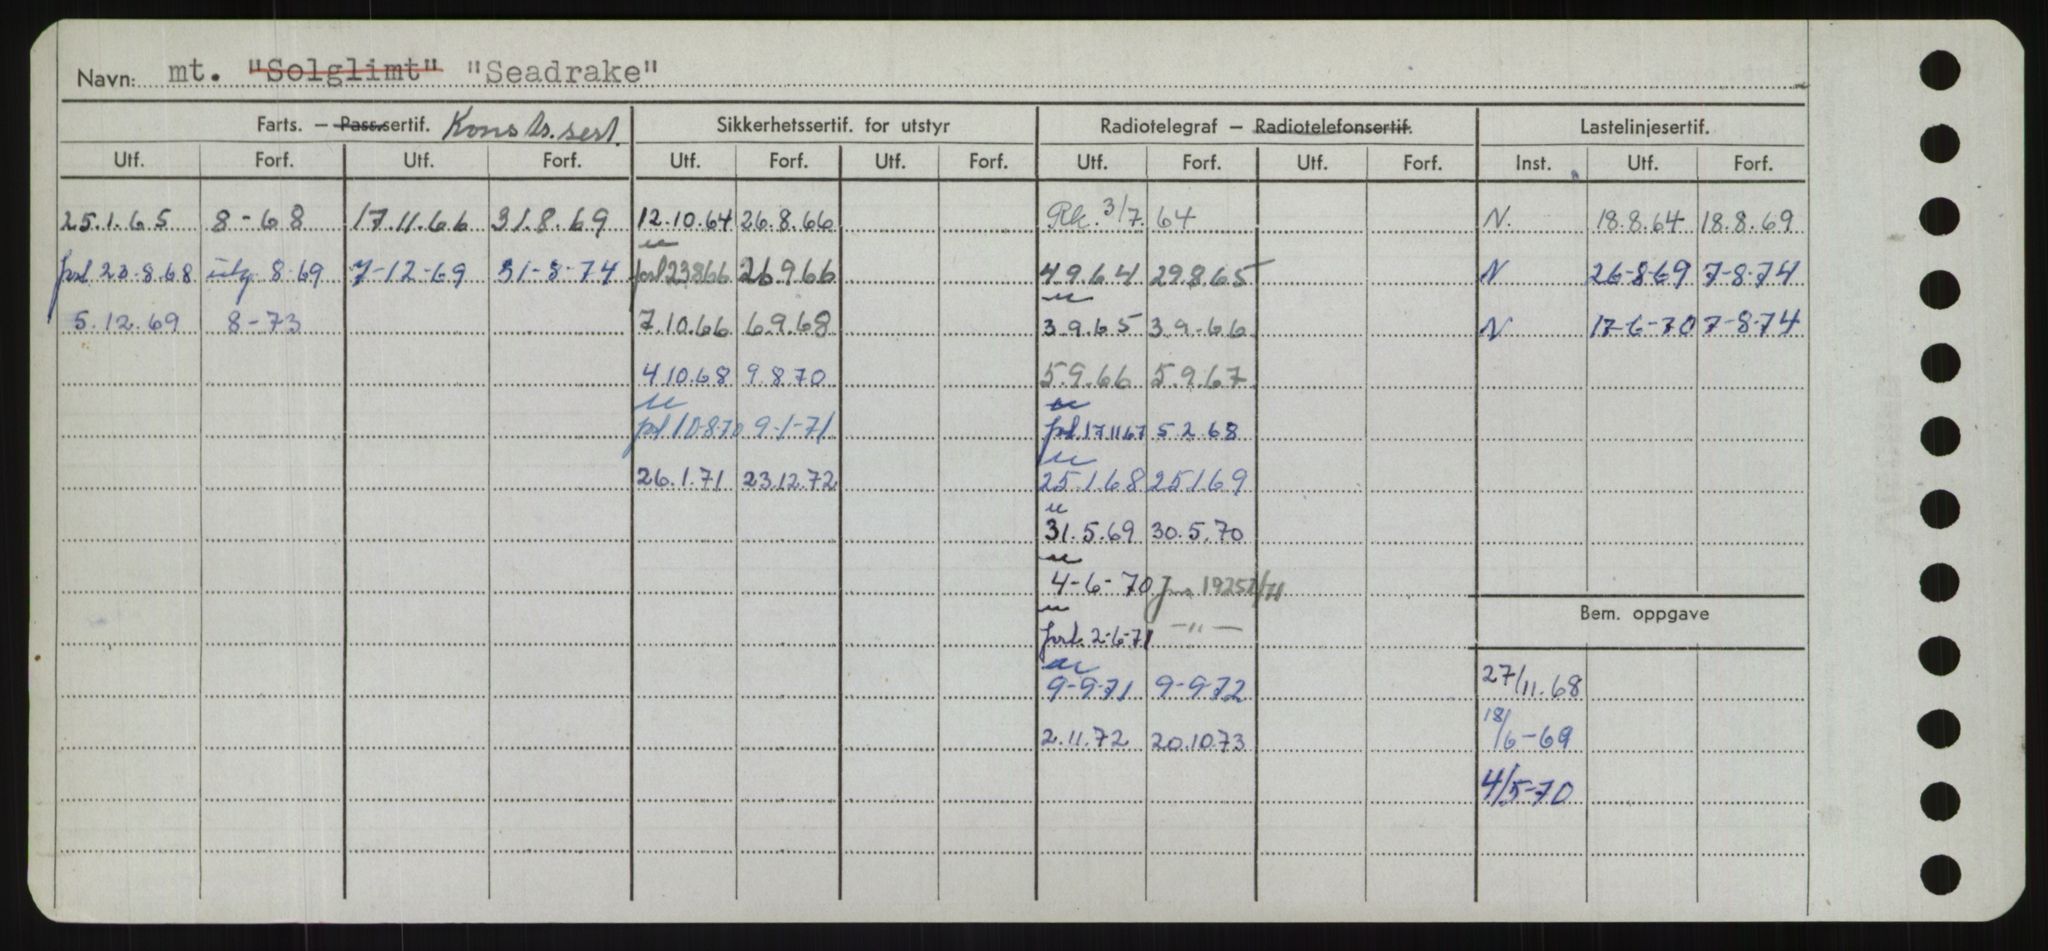 Navn: mt. "Solglimt" "Seadrake"
Farts. – Pass.sertif. Konstr.sert. Sikkerhetssertif. for utstyr Radiotelegraf – Radiotelefonsertif. Lastelinjesertif.
Utf. Forf. Utf. Forf. Utf. Forf. Utf. Forf. Utf. Forf. Utf. Forf. Inst. Utf. Forf.
25.1.65 8-68 17.11.66 31.8.69 12.10.64 26.8.66 Rk. 3/7.64 N. 18.8.64 18.8.69
forl 23.8.68 utg. 8-69 7-12-69 31-8-74 forl 23866 26.9.66 4.9.64 29.8.65 N 26-8-69 7-8-74
5.12.69 8-73 7.10.66 6.9.68 3.9.65 3.9.66 N 17-6-70 7-8-74
4.10.68 9.8.70 5.9.66 5.9.67
forl 10-8-70 9-1-71 forl. 171167 5.2.68
26.1.71 23.12.72 25.1.68 25.1.69
31.5.69 30.5.70
4-6-70
Bem. oppgave
forl. 2-6-71 -"-
9-9-71 9-9-72 27/11.68
2.11.72 20.10.73 18/6-69
4/5-70